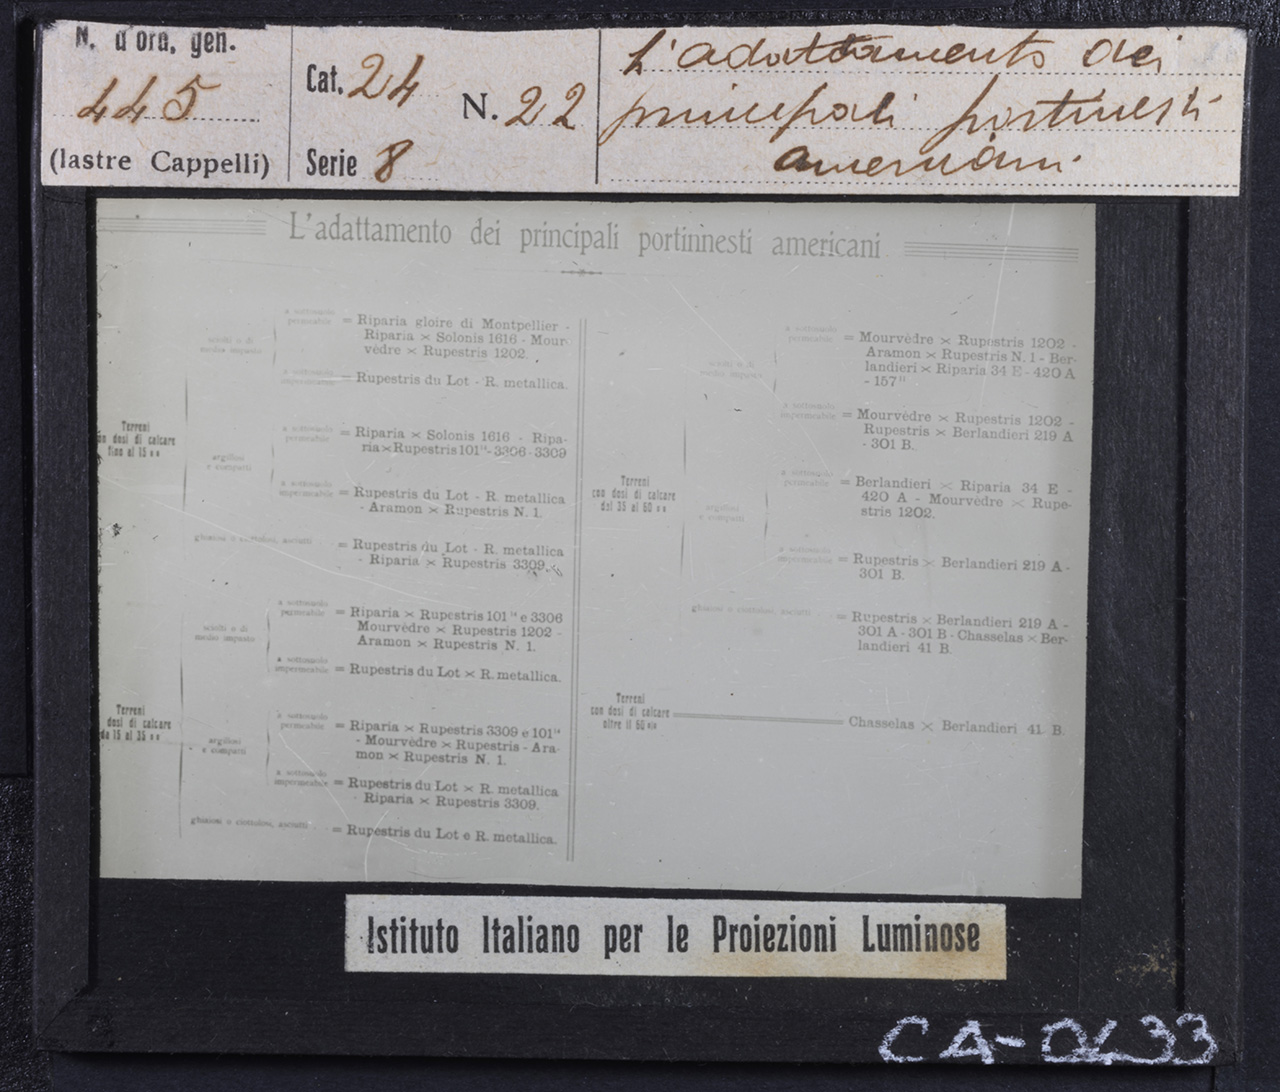 N. d'ord. gen.
445
(lastre Cappelli)
Cat. 24 N. 22
Serie 8
L'adattamento dei
principali portinnesti
americani
L'adattamento dei principali portinnesti americani
Terreni
con dosi di calcare
fino al 15 %
sciolti o di
medio impasto
a sottosuolo
permeabile
= Riparia gloire di Montpellier -
Riparia × Solonis 1616 - Mour-
vèdre × Rupestris 1202.
a sottosuolo
impermeabile
= Rupestris du Lot - R. metallica.
argillosi
e compatti
a sottosuolo
permeabile
= Riparia × Solonis 1616 - Ripa-
ria × Rupestris 101¹⁴ - 3306 - 3309
a sottosuolo
impermeabile
= Rupestris du Lot - R. metallica
- Aramon × Rupestris N. 1.
ghiaiosi o ciottolosi, asciutti
= Rupestris du Lot - R. metallica
- Riparia × Rupestris 3309.
Terreni
dosi di calcare
da 15 al 35 %
sciolti o di
medio impasto
a sottosuolo
permeabile
= Riparia × Rupestris 101¹⁴ e 3306
Mourvèdre × Rupestris 1202 -
Aramon × Rupestris N. 1.
a sottosuolo
impermeabile
= Rupestris du Lot × R. metallica.
argillosi
e compatti
a sottosuolo
permeabile
= Riparia × Rupestris 3309 e 101¹⁴
- Mourvèdre × Rupestris - Ara-
mon × Rupestris N. 1.
a sottosuolo
impermeabile
= Rupestris du Lot × R. metallica
- Riparia × Rupestris 3309.
ghiaiosi o ciottolosi, asciutti
= Rupestris du Lot e R. metallica.
Terreni
con dosi di calcare
dal 35 al 60 %
sciolti o di
medio impasto
a sottosuolo
permeabile
= Mourvèdre × Rupestris 1202 -
Aramon × Rupestris N. 1 - Ber-
landieri × Riparia 34 E - 420 A
- 157¹¹
a sottosuolo
impermeabile
= Mourvèdre × Rupestris 1202 -
Rupestris × Berlandieri 219 A
- 301 B.
argillosi
e compatti
a sottosuolo
permeabile
= Berlandieri × Riparia 34 E -
420 A - Mourvèdre × Rupe-
stris 1202.
a sottosuolo
impermeabile
= Rupestris × Berlandieri 219 A -
301 B.
ghiaiosi o ciottolosi, asciutti
= Rupestris × Berlandieri 219 A -
301 A - 301 B - Chasselas × Ber-
landieri 41 B.
Terreni
con dosi di calcare
oltre il 60 %
Chasselas × Berlandieri 41 B.
Istituto Italiano per le Proiezioni Luminose
CA-0433